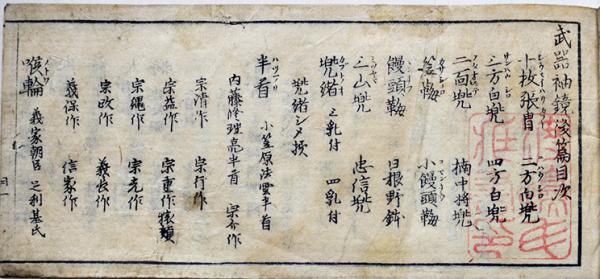 武器袖鏡後篇目次
十枚張冑 二方白兜
三方白兜 四方白兜
二面兜 楠中将兜
饅頭𩊱 日根野錏
三山兜 忠信兜
兜緒 三乳付 四乳付
兜緒シメ様
半首 小笠原法螺半首
内藤修理亮半首 宗介作
宗清作 宗行作
宗益作 宗重作猿頬
宗縄作 宗光作
宗政作 義安作
義保作 信家作
喉輪 義家朝臣 足利基氏